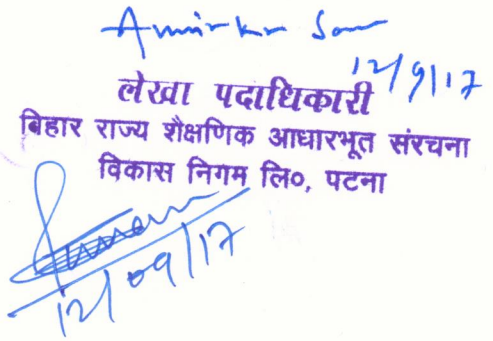 12/9/17
लेखा पदाधिकारी
बिहार राज्य शैक्षणिक आधारभूत संरचना
विकास निगम लि०, पटना
12/09/17